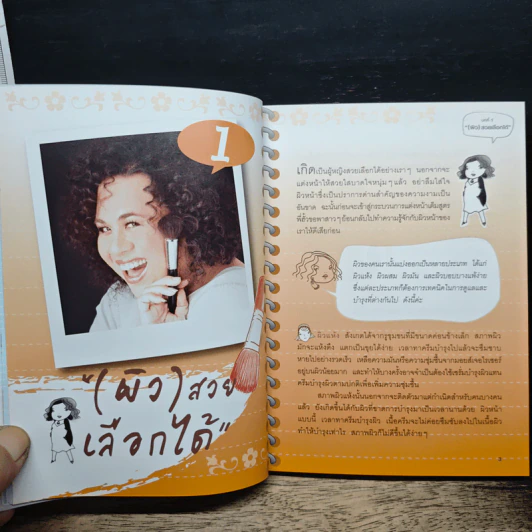 1
"(ผิว) สวย
เลือกได้"
บทที่ 1
"(ผิว) สวยเลือกได้"
เกิดเป็นผู้หญิงสวยเลือกได้อย่างเราๆ นอกจากจะ
แต่งหน้าให้สวยใสบาดใจหนุ่มๆ แล้ว อย่าลืมใส่ใจ
ผิวหน้าซึ่งเป็นปราการด่านสำคัญของความงามเป็น
อันขาด ฉะนั้นก่อนจะเข้าสู่กระบวนการแต่งหน้าเต็มสูตร
พี่ถั่วขอพาสาวๆ ย้อนกลับไปทำความรู้จักกับผิวหน้าของ
เราให้ดีเสียก่อน
ผิวของคนเรานั้นแบ่งออกเป็นหลายประเภท ได้แก่
ผิวแห้ง ผิวผสม ผิวมัน และผิวบอบบางแพ้ง่าย
ซึ่งแต่ละประเภทก็ต้องการเทคนิคในการดูแลและ
บำรุงที่ต่างกันไป ดังนี้ค่ะ
ผิวแห้ง สังเกตได้จากรูขุมขนที่มีขนาดค่อนข้างเล็ก สภาพผิว
มักจะแห้งตึง แตกเป็นขุยได้ง่าย เวลาทาครีมบำรุงไปแล้วจะซึมซาบ
หายไปอย่างรวดเร็ว เหลือความมันหรือความชุ่มชื้นจากมอยส์เจอไรเซอร์
อยู่บนผิวน้อยมาก และทำให้บางครั้งอาจจำเป็นต้องใช้เซรั่มบำรุงผิวแทน
ครีมบำรุงผิวตามปกติเพื่อเพิ่มความชุ่มชื้น
สภาพผิวแห้งนั้นนอกจากจะติดตัวมาแต่กำเนิดสำหรับคนบางคน
แล้ว ยังเกิดขึ้นได้กับผิวที่ขาดการบำรุงมาเป็นเวลานานด้วย ผิวหน้า
แบบนี้ เวลาทาครีมบำรุง เนื้อครีมจะไม่ค่อยซึมซับลงไปในเนื้อผิว
ทำให้บำรุงเท่าไร สภาพผิวก็ไม่ดีขึ้นได้ง่ายๆ